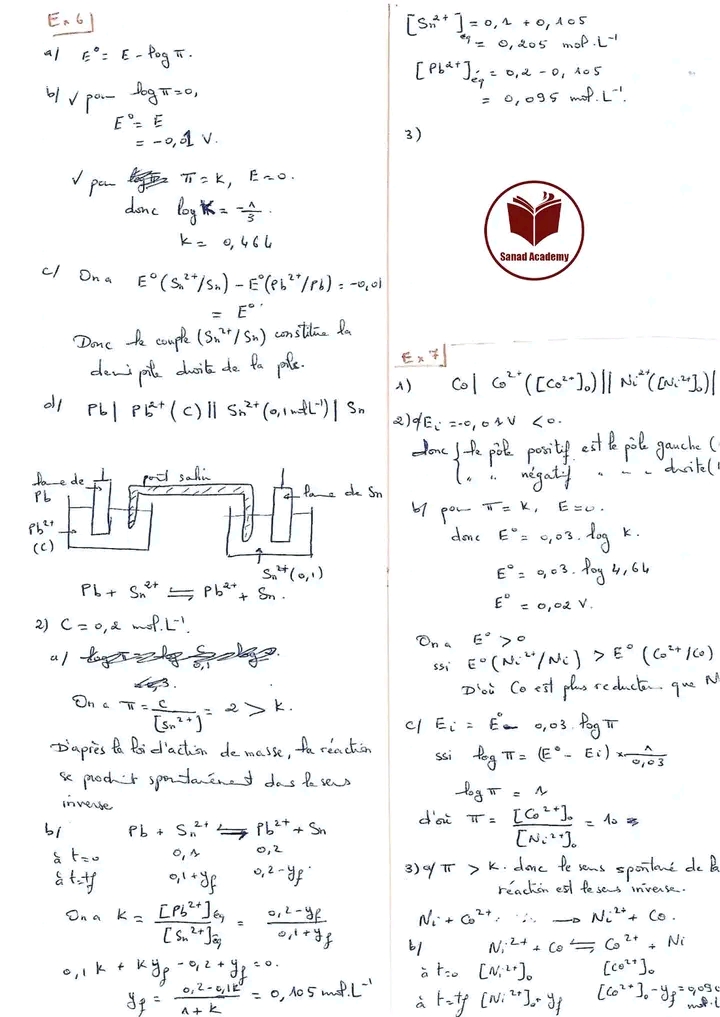 Ex 6
a/ E° = E - log π.
b/ √ pour log π = 0,
E° = E
= -0,01 V.
√ pour π = K, E = 0.
donc log K = -1/3.
K = 0,464
c/ On a E°(Sn²⁺/Sn) - E°(Pb²⁺/Pb) = -0,01
= E°.
Donc le couple (Sn²⁺/Sn) constitue la
demi pile droite de la pile.
d/ Pb | Pb²⁺ (C) || Sn²⁺ (0,1 mol L⁻¹) | Sn
lame de Pb
pont salin
lame de Sn
Pb²⁺ (C)
Sn²⁺ (0,1)
Pb + Sn²⁺ ⇌ Pb²⁺ + Sn.
2) C = 0,2 mol.L⁻¹.
a/
On a π = C/[Sn²⁺] = 2 > K.
D'après la loi d'action de masse, la réaction
se produit spontanément dans le sens
inverse
b/ Pb + Sn²⁺ ⇌ Pb²⁺ + Sn
à t=0 0,1 0,2
à t=tf 0,1+yf 0,2-yf
On a K = [Pb²⁺]éq/[Sn²⁺]éq = (0,2-yf)/(0,1+yf)
0,1 K + K yf - 0,2 + yf = 0.
yf = (0,2-0,1K)/(1+K) = 0,105 mol.L⁻¹
[Sn²⁺]éq = 0,1 + 0,105
= 0,205 mol.L⁻¹
[Pb²⁺]éq = 0,2 - 0,105
= 0,095 mol.L⁻¹.
3)
Sanad Academy
Ex 7
1) Co | Co²⁺ ([Co²⁺]₀) || Ni²⁺ ([Ni²⁺]₀) |
2) a/ Ei = -0,01 V < 0.
donc { le pôle positif est le pôle gauche (
" " négatif " " " droite (
b/ pour π = K, E = 0.
donc E° = 0,03. log K.
E° = 0,03. log 4,64
E° = 0,02 V.
On a E° > 0
ssi E°(Ni²⁺/Ni) > E°(Co²⁺/Co)
D'où Co est plus reducteur que N
c/ Ei = E° - 0,03. log π
ssi log π = (E° - Ei) × 1/0,03
log π = 1
d'où π = [Co²⁺]₀/[Ni²⁺]₀ = 10
3) a/ π > K. donc le sens spontané de la
réaction est le sens inverse.
Ni + Co²⁺ → Ni²⁺ + Co.
b/ Ni²⁺ + Co ⇌ Co²⁺ + Ni
à t=0 [Ni²⁺]₀ [Co²⁺]₀
à t=tf [Ni²⁺]₀+yf [Co²⁺]₀-yf = 0,09